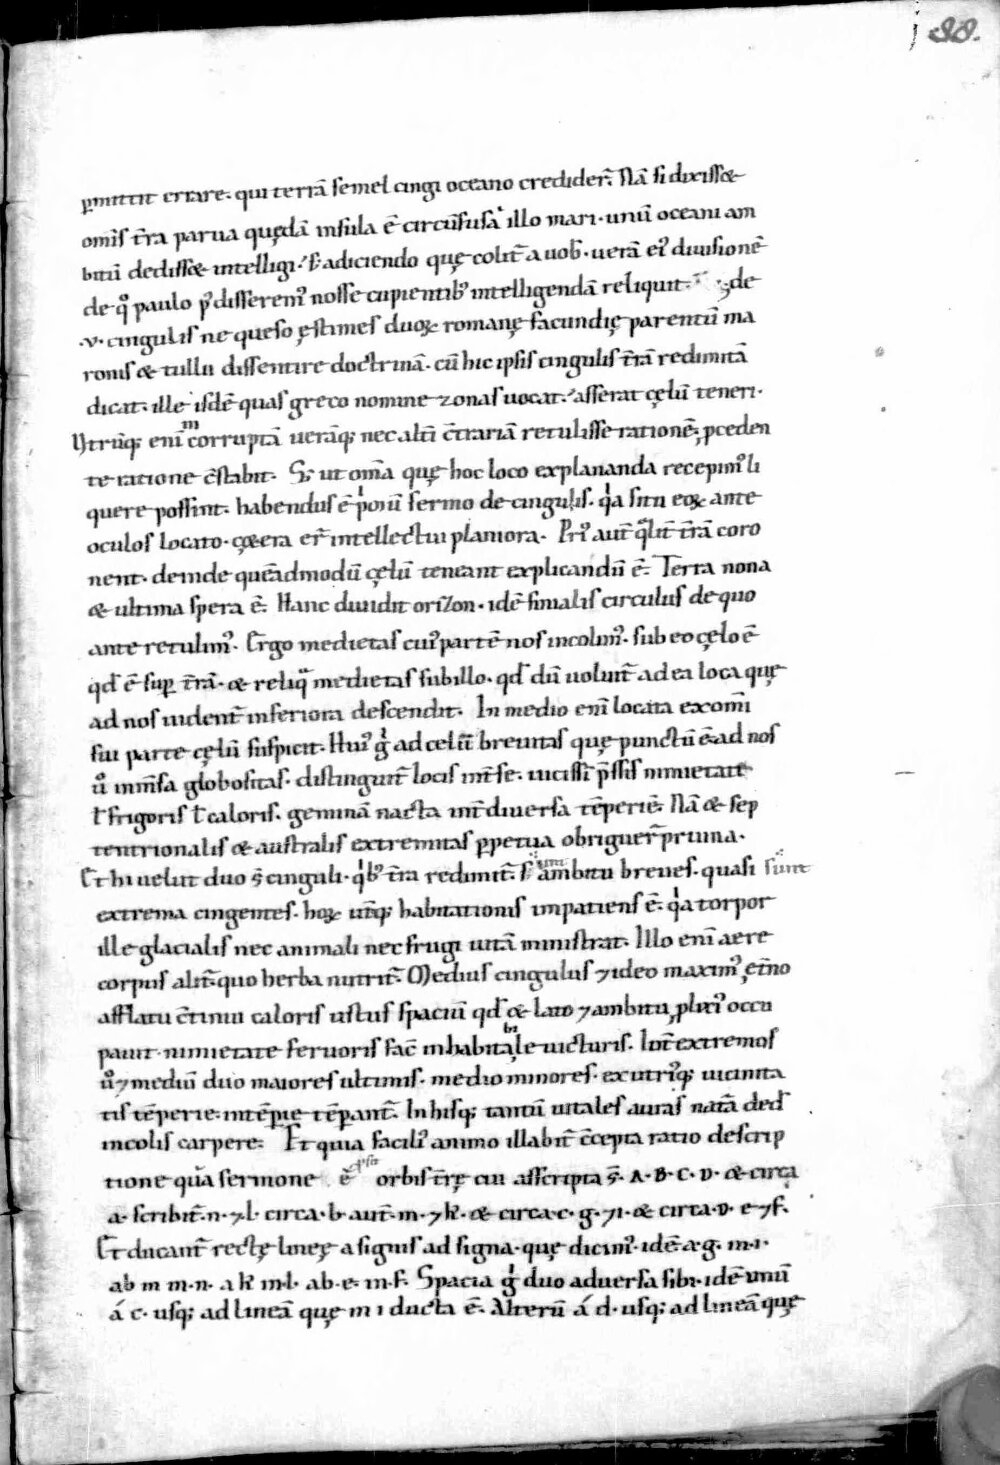 88.
ꝑmittit errare. qui terrā semel cingi oceano credider̄. Nā si dixiss&
om̄is t̄ra parua quędā insula ē circūfusa illo mari. unū oceani am
bitū dediss& intelligi. s; adiciendo quę colit̄ a uob. uerā ei' diuisionē
de q° paulo p' disserem' nosse cupientib' intelligendā reliquit. de
.v. cingulis ne queso ęstimes duoꝝ romanę facundię parentū ma
ronis & tullii dissentire doctrinā. cū hic ipsis cingulis t̄rā redimitā
dicat. ille isdē quas greco nomine zonas uocat. asserat cęlū teneri.
Vtrūq; enī incorruptā uerāq; nec alt̄i c̄trariā retulisse rationē. ꝓceden
te ratione c̄stabit. S; ut om̄a quę hoc loco explananda recepim' li
quere possint. habendus ē p'oriū sermo de cingulis. q'a situ eoꝝ ante
oculos locato. c&era er̄ intellectui planiora. Pri' aut̄ q'lit̄ t̄rā coro
nent. deinde quēadmodū cęlū teneant explicandū ē. Terra nona
& ultima spera ē. Hanc diuidit orizon. idē finalis circulus de quo
ante retulim'. Ergo medietas cui' partē nos incolim'. sub eo cęlo ē
qd̄ ē sup t̄rā. & reliqua medietas sub illo. qd̄ dū uoluit̄ ad ea loca quę
ad nos uident̄ inferiora descendit. In medio enī locata ex omī
sui parte cęlū suspicit. Hui' g' ad celū breuitas quę punctū ē. ad nos
ů inm̄sa globositas. distinguit̄ locis int̄ se. uicissī p̄ssis nimietate
ł frigoris ł caloris. geminā nacta int̄ diuersa tēperiē. Nā & sep
tentrionalis & australis extremitas ꝑpetua obriguer̄ pruina.
Et hi uelut duo s̄ cinguli. q'b' t̄ra redimit̄. s; ambitu breues. quasi sunt
extrema cingentes. hoꝝ ut̄q; habitationis impatiens ē. q'a torpor
ille glacialis nec animali nec frugi uitā ministrat. Illo enī aere
corpus alit̄. quo herba nutrit̄. Medius cingulus ⁊ ideo maxim', ęt̄no
afflatu c̄tinui caloris ustus spaciū qd̄ & lato ⁊ ambitu ꝓlixi' occu
pauit. nimietate feruoris fac̄ inhabitabile uicturis. Int̄ extremos
ů ⁊ mediū duo maiores ultimis. medio minores. ex utri'q; uicinita
tis tēperie. intēꝑie tēperant̄. In hisq; tantū uitales auras natā ded̄
incolis carpere. Et quia facili' animo illabit̄ c̄cepta ratio descrip
tione quā sermone. ē orbis t̄rę cui asscripta s̄. A. B. C. D. & circa
a. scribit̄. n. ⁊ l. circa. b. aut̄. m. ⁊ k. & circa. c. g. ⁊ i. & circa. d. e ⁊ f.
Et ducant̄ rectę lineę a signis ad signa. quę dicim'. idē. a. g. in. i.
ab m in. n. a k in. l. ab. e. in. f. Spacia g' duo aduersa sibi. idē unū
á c. usq; ad lineā quę in i ducta ē. Alterū á d. usq; ad lineā quę